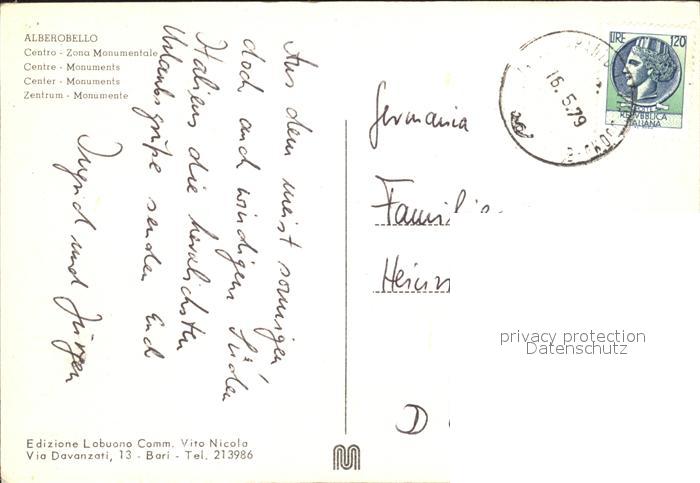 ALBEROBELLO
Centro - Zona Monumentale
Centre - Monuments
Center - Monuments
Zentrum - Monumente
Aus dem meist sonnigen
doch auch windigen Süden
Italiens die herzlichsten
Urlaubsgrüße senden Euch
Ingrid und Jürgen
Edizione Lobuono Comm. Vito Nicola
Via Davanzati, 13 - Bari - Tel. 213986
LIRE 120
REPVBBLICA
ITALIANA
16.5.79
Germania
Familie
Hein
D
privacy protection
Datenschutz